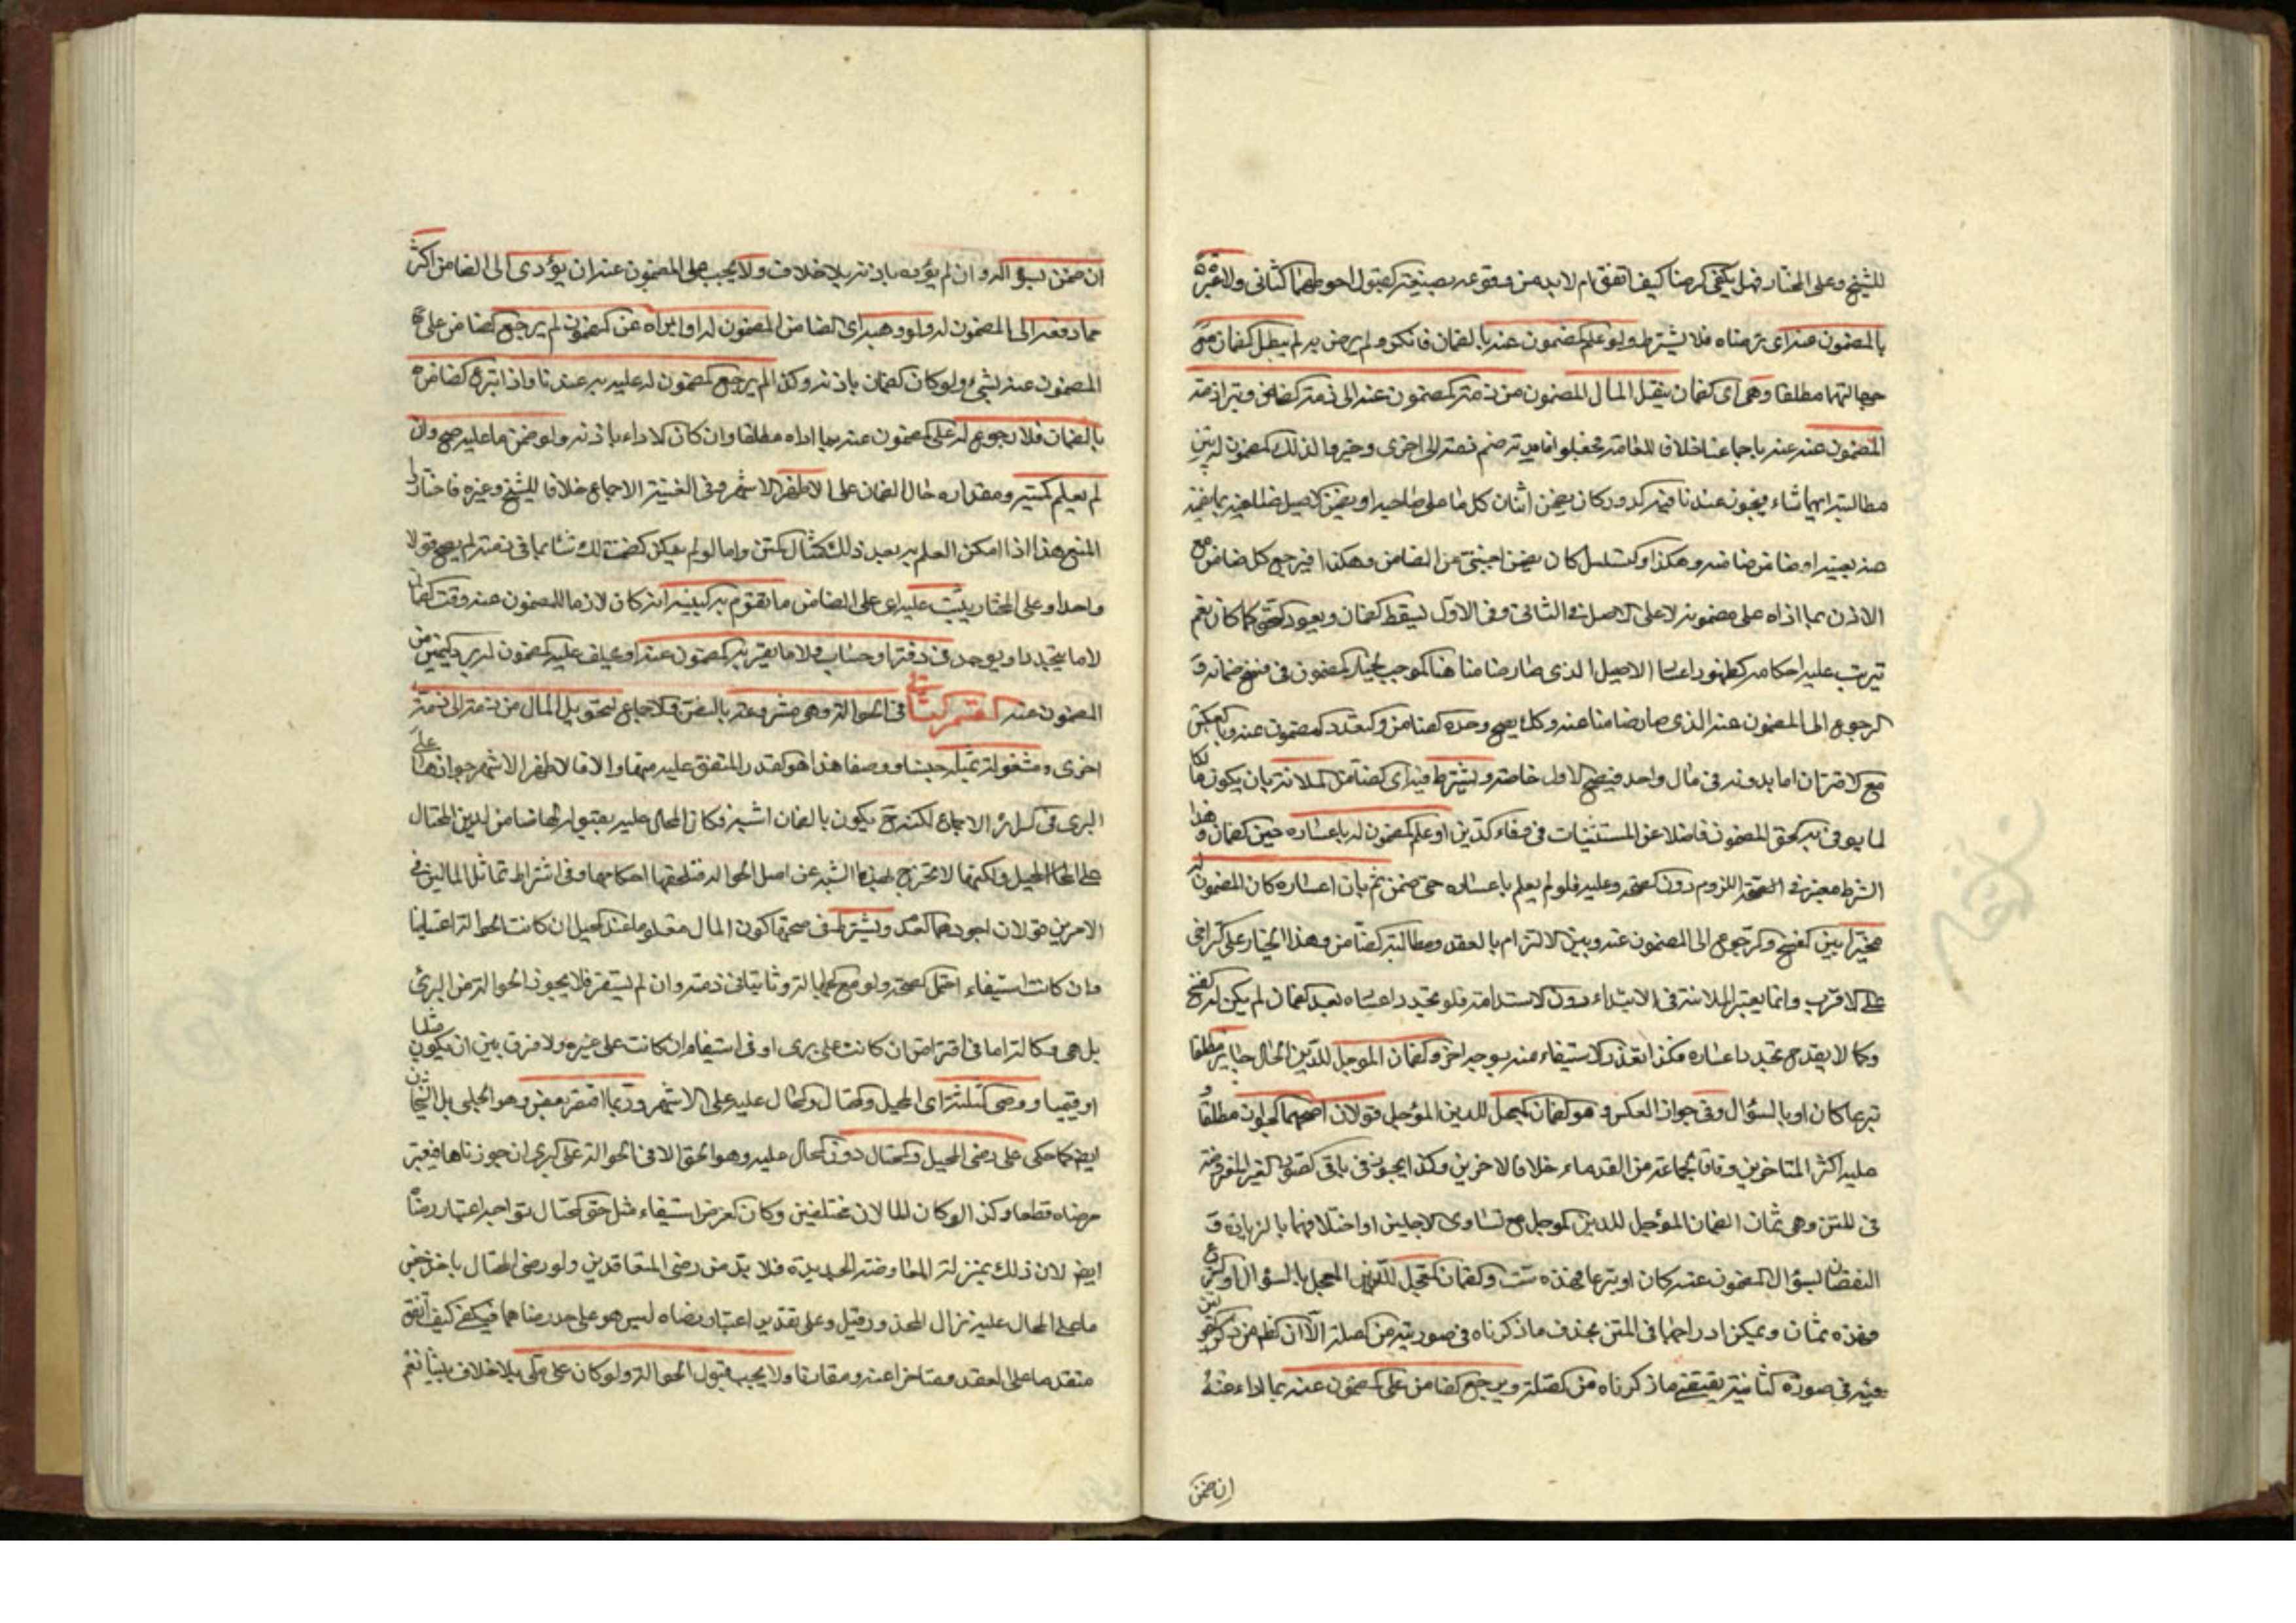 للشيخ وعلى المختار فهل يكفي الرضا كيف اتفق ام لا بد من وقوعه بصيغة القبول احوطهما الثاني ولا عبرة
بالمضمون عنه اى برضاه فلا يشترط ولو علم المضمون عنه بالضمان فانكر ولم يرض به لم يبطل الضمان مع
جهالتها مطلقا وهى اى الضمان ينقل المال المضمون من ذمة المضمون عنه الى ذمة الضامن وتبرا ذمة
المضمون عنه عندنا باجماعنا خلافا للعامة فجعلوا فايدته ضم ذمة الى اخرى وخيروا لذلك المضمون له بين
مطالبة ايهما شاء ويجوز عندنا فيه الدور كان يضمن اثنان كل ما على صاحبه او يضمن الاصيل ضامنه بما يضمنه
عنه بعينه او ضامن ضامنه وهكذا والتسلسل كان يضمن اجنبي عن الضامن وهكذا فيرجع كل ضامن مع
الاذن بما اداه على مضمونه لا على الاصل في الثاني وفي الاول يسقط الضمان ويعود الحق كما كان نعم
تترتب عليه احكامه كظهور اعسار الاصيل الذى صار ضامنا هنا الموجب لخيار المضمون في فسخ ضمانه و
الرجوع الى المضمون عنه الذى صار ضامنا عنه وكك يصح وحدة الضامن وتعدد المضمون عنه وبالعكس
مع الاقتران اما بدونه في مال واحد فيصح الاول خاصة ويشترط فيه اى الضامن الملائة بان يكون مالكا
لما يوفى به الحق المضمون فاضلا عن المستثنيات في وفاء الدين او علم المضمون له باعساره حين الضمان وهذا
الشرط معتبر في العقد اللزوم دون الصحة وعليه فلو لم يعلم باعساره حتى ضمن ثم بان اعساره كان المضمون له
مخيرا بين الفسخ والرجوع الى المضمون عنه وبين الالتزام بالعقد ومطالبة الضامن وهذا الخيار على التراخي
على الاقرب وانما يعتبر الملائة في الابتداء دون الاستدامة فلو تجدد اعساره بعد الضمان لم يكن له الفسخ
وكما لا يقدح تجدد اعساره فكذا تعذر الاستيفاء منه بوجه اخر والضمان الموجل للدين الحال جايز مطلقا
تبرعا كان او بالسؤال وفي جواز العكس وهو ضمان المعجل للدين المؤجل قولان اصحهما الجواز مطلقا و
عليه اكثر المتاخرين وفاقا لجماعة من القدماء خلافا لاخرين وكذا يجوز في باقى الصور الغير المفروضة
في المتن وهى ثمان الضمان المؤجل للدين الموجل مع تساوى الاجلين او اختلافهما بالزيادة و
النقصان بسؤال المضمون عنه كان او تبرعا فهذه ست والضمان المعجل للدين المعجل بالسؤال او التبرع
فهذه ثمان ويمكن ادراجها في المتن بحذف ما ذكرناه في صورتيه من الصلة الا ان الظاهر من ذكر التفويتين
فيه في صورة الثانية يقتضى ما ذكرناه من الصلة ويرجع الضامن على المضمون عنه بما اداه عنه
ان ضمن
ان ضمن بسؤاله وان لم يؤده باذنه بلا خلاف ولا يجب على المضمون عنه ان يؤدى الى الضامن اكثر
مما دفعه الى المضمون له ولو وهبه اى الضامن المضمون له او ابراه عن المضمون لم يرجع الضامن على
المضمون عنه بشيء ولو كان الضمان باذنه وكذا لم يرجع المضمون له عليه به عندنا واذا تبرع الضامن
بالضمان فلا رجوع له على المضمون عنه بما اداه مطلقا وان كان الاداء باذنه ولو ضمن ما عليه صح وان
لم يعلم كميته ومقداره حال الضمان على الاظهر الاشهر وفي الغنية الاجماع خلافا للشيخ وغيره فاختاروا
المنع هذا اذا امكن العلم به بعد ذلك كمثال المتن واما لو لم يمكن كضمنت لك شيئا مما في ذمته لم يصح قولا
واحدا وعلى المختار يثبت عليه اى على الضامن ما تقوم به البينة انه كان لازما للمضمون عنه وقت الضمان
لا ما يتجدد او يوجد في دفتر او حساب ولا ما يقر به المضمون عنه او يحلف عليه المضمون له برد اليمين من
المضمون عنه القسم الثاني في الحوالة وهى مشروعة بالنص والاجماع لتحويل المال من ذمة الى ذمة
اخرى مشغولة بمثله جنسا ووصفا هذا هو القدر المتفق عليه منها والا فالاظهر الاشهر جوازها على
البرى وفي السرائر الاجماع لكنه ح يكون بالضمان اشبه فكان المحال عليه بقبوله لها ضامن لدين المحتال
على المحيل ولكنها لا تخرج بهذا الشبه عن اصل الحوالة فتلحقها احكامها وفي اشتراط تماثل المالين في
الامرين قولان اجودهما العدم ويشترط في صحتها كون المال معلوما عند المحيل ان كانت الحوالة اعتياضا
وان كانت استيفاء احتمل الصحة ولو مع الجهالة وثابتا في ذمته وان لم يستقر فلا يجوز الحوالة من البرئ
بل هى وكالة اما في اقتراض ان كانت على برى او في استيفاء ان كانت على غيره ولا فرق بين ان يكون مثليا
او قيميا ورضى الثلثة اى المحيل والمحتال والمحال عليه على الاشهر وربما اقتصر بعض وهو الحلبى بل الشيخان
ايضا كما حكى على رضى المحيل والمحتال دون المحال عليه وهو الحق الا في الحوالة على البرى ان جوزناها فيعتبر
رضاه قطعا وكذا لو كان المالان مختلفين وكان الغرض استيفاء مثل حق المحتال توجه اعتبار رضاه
ايضا لان ذلك بمنزلة المعاوضة الجديدة فلا بد من رضى المتعاقدين ولو رضى المحتال باخذ جنس
ما على المحال عليه زال المحذور قيل وعلى تقدير اعتبار رضاه ليس هو على حد رضاهما فيكفى كيف اتفق
متقدما على العقد ومتاخرا عنه ومقارنا ولا يجب قبول الحوالة ولو كان على ملى بلا خلاف بيننا نعم